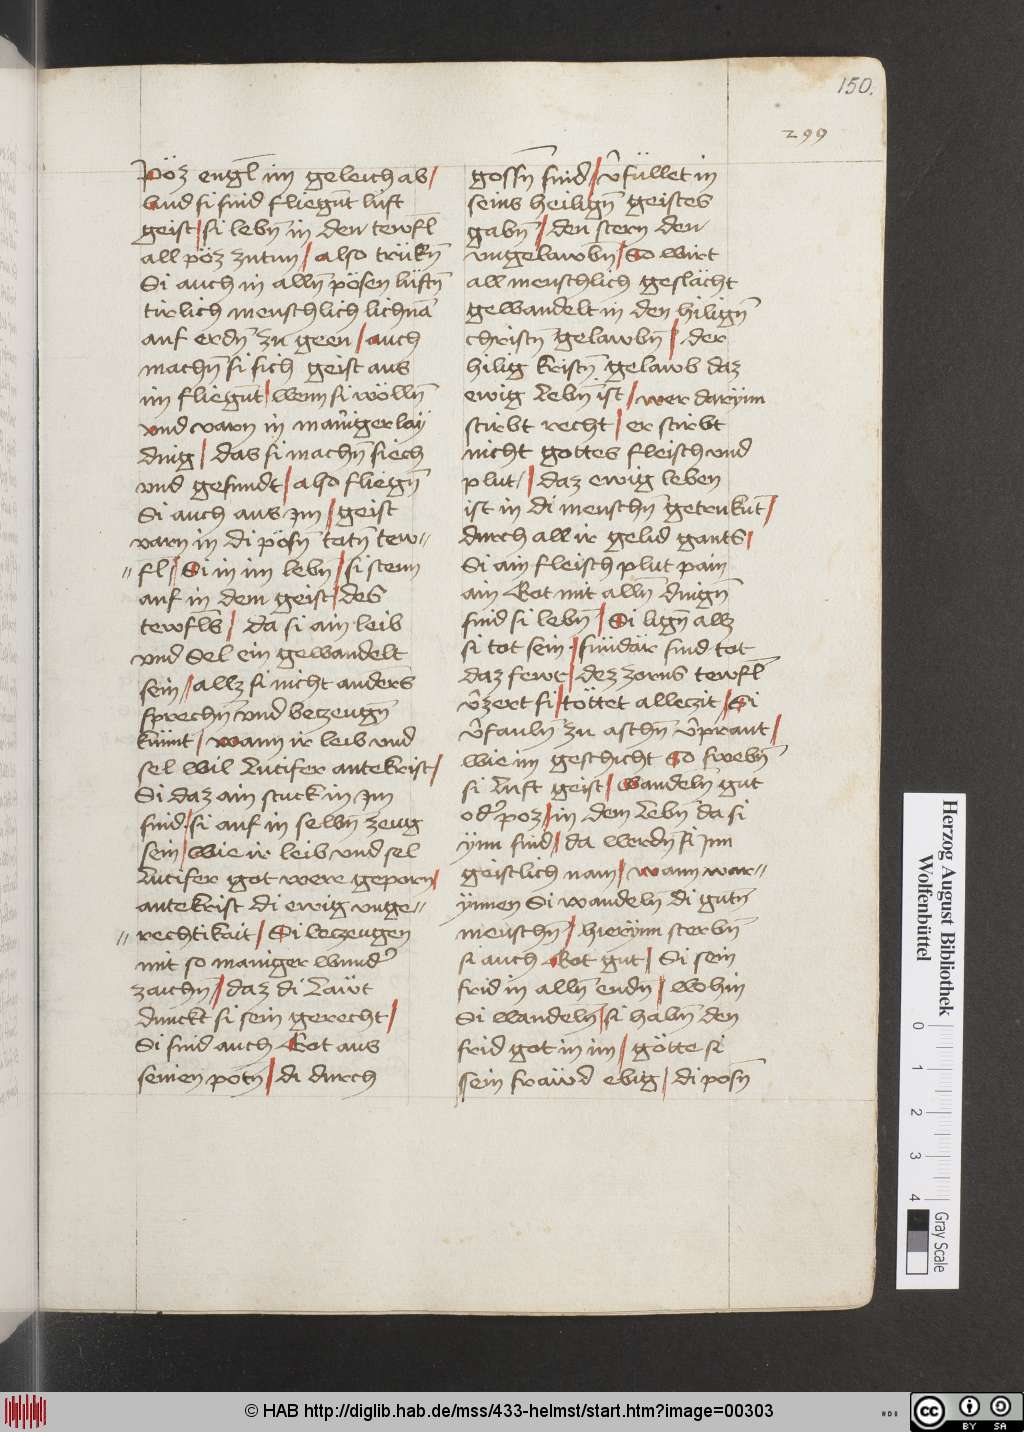 150.
299
pöz engl̄ im geleich ab /
vnd si sind fliegn̄t lüft
geist / si lebn̄ in den tewfl
all pöz zutun / also trükn̄
Si auch in alln̄ pösen lüftn̄
tirlich menschlich lichnā
auf erdn̄ zu geen / auch
machn̄ si sich geist aus
im fliegn̄t / wenn si wölln̄
vnd varn in man̄iger lay
ding / das si machn̄ siech
vnd gesundt / also fliegn̄
Si auch aus jm / geist
varn in di pösn̄ totn̄ tew=
= fl / Si in im lebn̄ / si steen
auf in dem geist / des
tewfls / da si ain leib
vnd Sel ein gewandelt
sein / allz si nicht anders
sprechn̄ vnd betzeugn̄
künnt / wann ir leib vnd
sel wil Lucifer antekrist /
Si daz ain stuck in jm
sind / si auf in selbn̄ zeug
sein / wie ir leib vnd sel
Lucifer got were geporn /
antekrist di ewig vnge=
= rechtikait / Si betzeugen
mit so maniger wund̄
zaichn̄ / daz di Läwt
dunckt si sein gerecht /
Si sind auch Rot aus
seinen potn̄ / di durch
gossn̄ sind / v̄füllet in
seins heilign̄ geistes
gabn̄ / den stern den
vngelawbn̄ / So wirt
all menschlich geslächt
gewandelt in den hilign̄
christn̄ gelawbn̄ / der
hilig kristn̄ gelawb daz
ewig Lebn̄ ist / wer darynn
stirbt recht / er stirbt
nicht gottes fleisch vnd
plut / daz ewig leben
ist in di menschn̄ getrukn̄t /
durch all ir gelid gants /
Si ain fleisch plut pain
ain Rot mit alln̄ dingn̄
sind si lebn̄ / Si lign̄ allz
si tot sein / sündär sind tot
daz fewr / dez zorns tewfl̄
v̄zert si / töttet alletzit / Si
v̄fauln̄ zu aschn̄ v̄prant /
wie im geschicht So swebn̄
si Luft geist / wandeln̄ gut
od̄ poz / in dem Lebn̄ da si
ynn sind / da werdn̄ si jnn
geistlich nam / wann war=
ynnen Si wandeln̄ di gutn̄
menschn̄ / hierynn sterbn̄
si auch Rot gut / Si sein
frid in alln̄ endn̄ / wohin
Si wandeln̄ / si habn̄ den
frid got in im / götte si
sein fräwd ebig / di posn̄
Herzog August Bibliothek
Wolfenbüttel
0
1
2
3
4
Gray Scale
© HAB http://diglib.hab.de/mss/433-helmst/start.htm?image=00303
cc BY SA